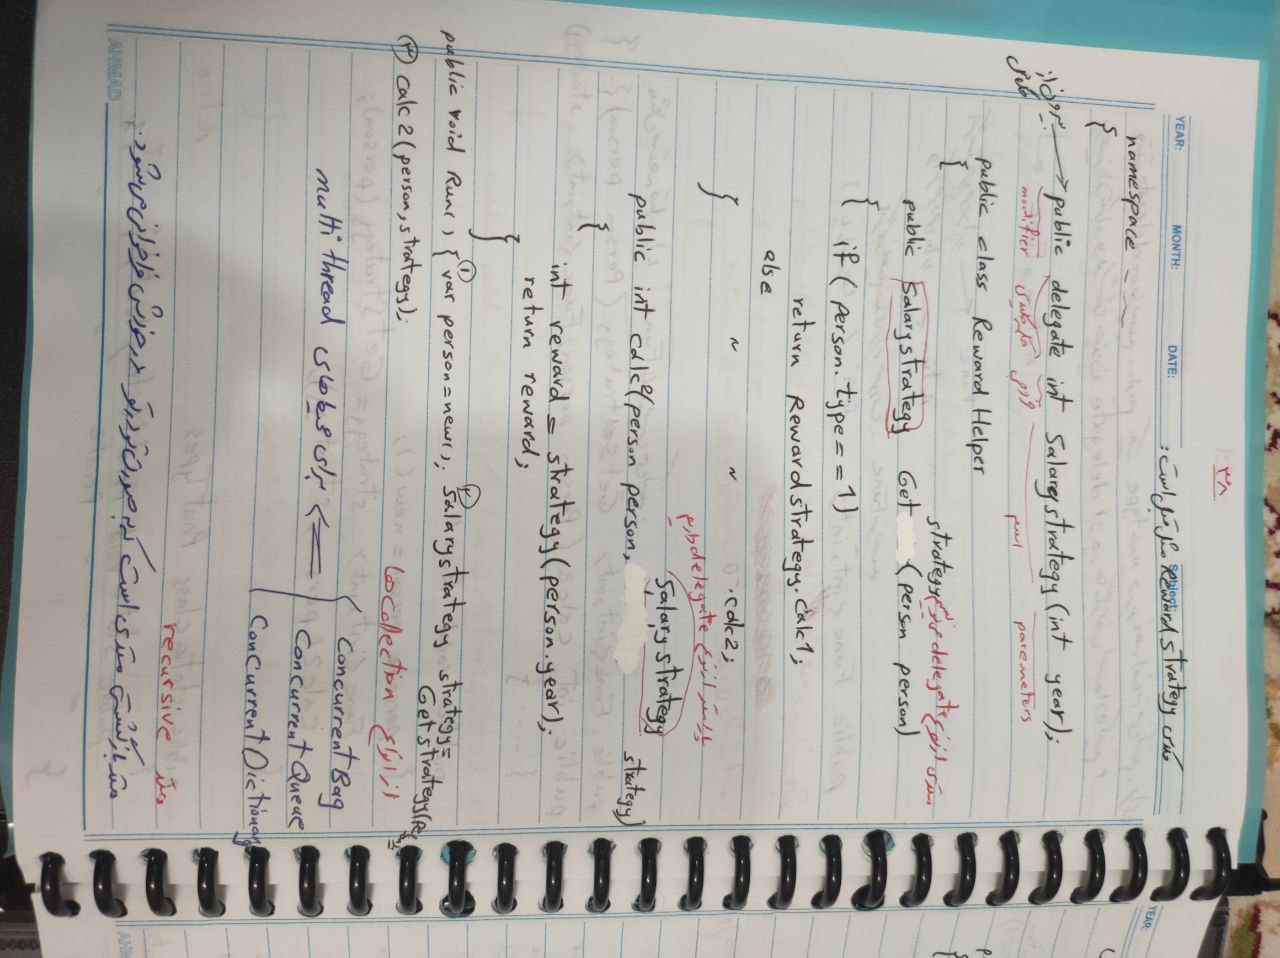 ۳۸
YEAR: MONTH: DATE: Subject:
کلاس Reward strategy مثل قبل است:
namespace
{
بیرون از کلاس → public delegate int Salary strategy (int year);
modifier کلمه کلیدی خروجی اسم paremeters
public class Reward Helper
{
متدی از نوع delegate می نویسیم
public Salary strategy Get strategy (person person)
{
if (person. type == 1)
return Reward strategy. calc1;
else
} ~ ~ .calc2;
پارامتر از نوع delegate داریم
public int calc2(person person, Salary strategy strategy)
{
int reward = strategy (person.year);
return reward;
}
public void Run( ) { ① var person = new( ); ② Salary strategy strategy = Get strategy (person);
③ calc 2 (person, strategy);
از انواع collection ها
Concurrent Bag
برای محیط های multi thread ⇐ Concurrent Queue
Concurrent Dictionary
متد recursive
متد بازگشتی متدی است که به صورت تو در تو در خودش فراخوانی می شود.
AHMAD
YEAR: